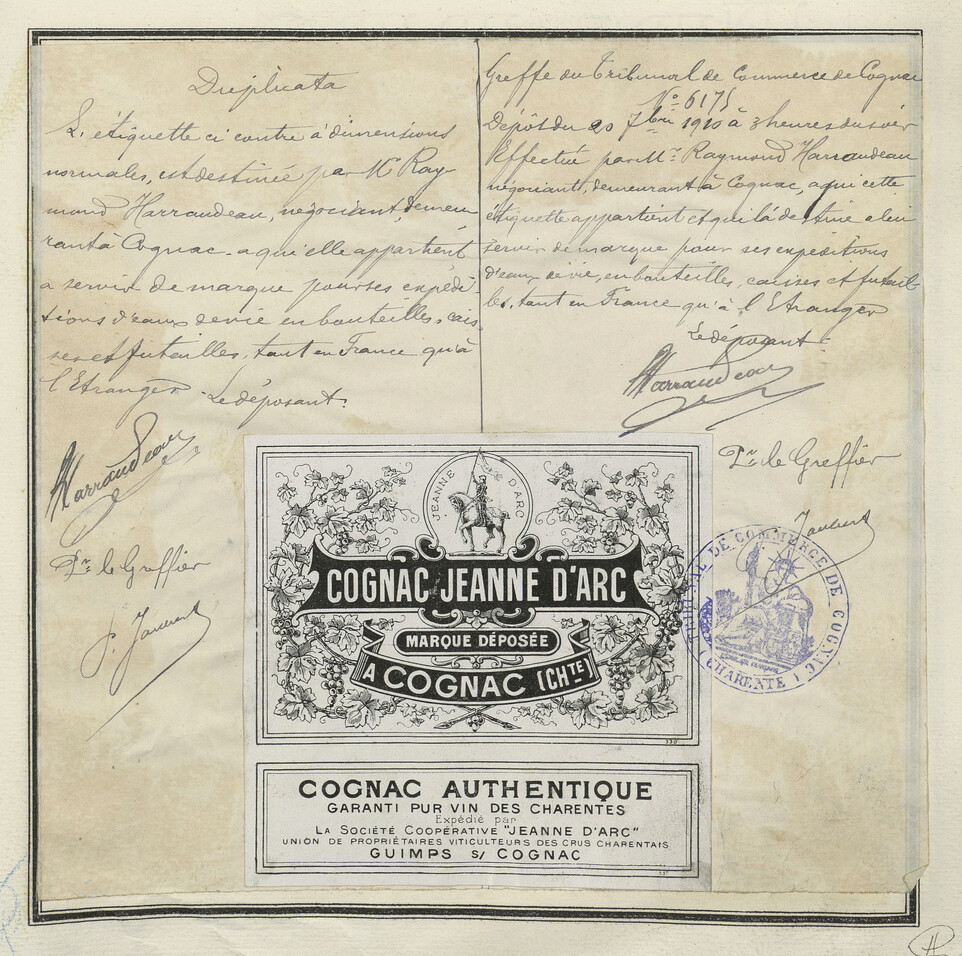 Duplicata
L'étiquette ci contre à dimensions
normales, est destinée par Mr Ray-
mond Harraudeau, négociant, demeu
rant à Cognac. a qui elle appartient
a servir de marque pour ses expédi-
tions d'eaux de vie en bouteilles, cais
ses et futailles, tant en France qu'à
l'Etranger Le déposant.
Harraudeau
Pr. le Greffier
Greffe du Tribunal de Commerce de Cognac
No 6175
Dépôt du 20 7bre 1910 à 3 heures du soir
Effectué par Mr. Raymond Harraudeau
négociant, demeurant à Cognac, a qui cette
étiquette appartient et qui la destine a lui
servir de marque pour ses expéditions
d'eaux de vie, en bouteilles, caisses et futail-
les, tant en France qu'à l'Etranger
Le déposant.
Harraudeau
Pr. le Greffier
TRIBUNAL DE COMMERCE DE COGNAC
(CHARENTE)
JEANNE D'ARC
COGNAC JEANNE D'ARC
MARQUE DÉPOSÉE
A COGNAC (CHTE)
330
COGNAC AUTHENTIQUE
GARANTI PUR VIN DES CHARENTES
Expédié par
LA SOCIÉTÉ COOPÉRATIVE "JEANNE D'ARC"
UNION DE PROPRIÉTAIRES VITICULTEURS DES CRUS CHARENTAIS
GUIMPS S/ COGNAC
337